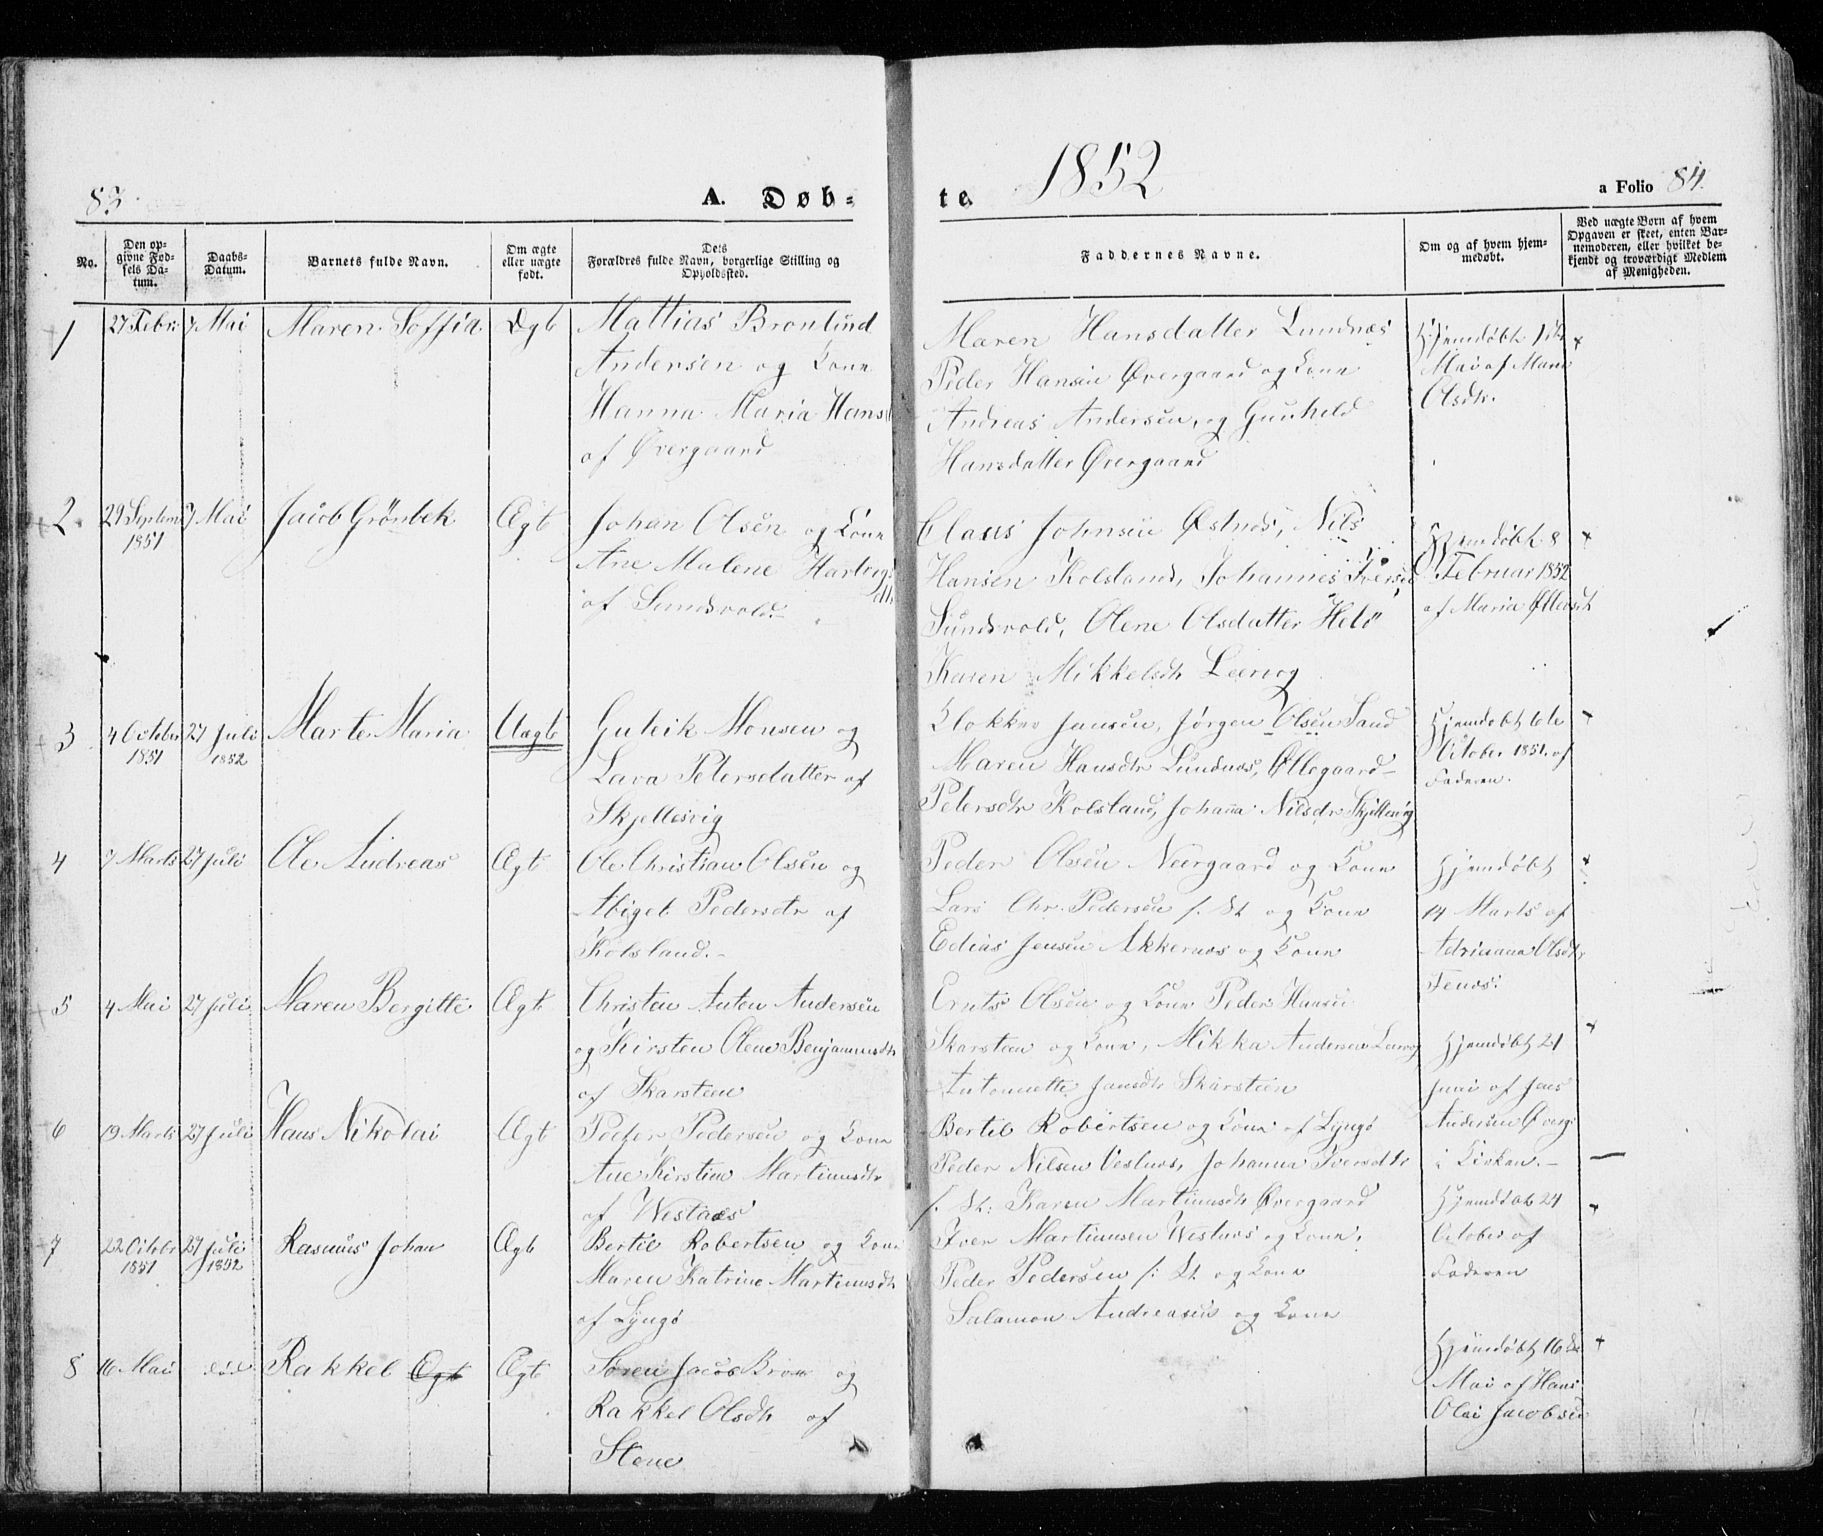 83.
A. Døb-
te.
1852
a Folio 84.
No.
Den op-
givne Fød-
sels Da-
tum.
Daabs-
Datum.
Barnets fulde Navn.
Om ægte
eller uægte
født.
Dets
Forældres fulde Navn, borgerlige Stilling og
Opholdssted.
Faddernes Navne.
Om og af hvem hjem-
medøbt.
Ved uægte Børn af hvem
Opgaven er skeet, enten Bar-
nemoderen, eller hvilket be-
kjendt og troværdigt Medlem
af Menigheden.
1
27 Febr.
7 Mai
Maren Soffia
Ægt
Mattias Bronlund
Andersen og Kone
Hanna Maria Hansd
af Øvergaard
Maren Hansdatter Lundnæs
Peder Hansen Øvergaard og Kone
Andreas Andersen, og Gunhild
Hansdatter Øvergaard
Hjemdøbt 1ste
Mai af Maren
Olsdtr.
2
29 Septem
1851
7 Mai
Jacob Grönbek
Ægt
Johan Olsen og Kone
Ane Malene Hartvigs
dtr
af Sundsvold
Claus Johnsen Østnes, Nils
Hansen Kolsland, Johannes Iversen
Sundsvold, Olene Olsdatter Helö
Karen Mikkelsdtr Leervog
Hjemdøbt 8
Februar 1852
af Maria Øllevsdt
3
4 October
1851
27 Juli
1852
Marte Maria
Uægt
Guleik Monsen og
Lava Petersdatter af
Skjellesvig
Klokker Jansen, Jørgen Olsen Sand
Maren Hansdtr Lundnæs, Øllegaard
Petersdtr Kolsland, Johanna Nilsdr Skjellesvig
Hjemdøbt 6te
October 1851 af
Faderen.
4
7 Marts
27 Juli
Ole Andreas
Ægt
Ole Christian Olsen og
Abigel Pedersdtr af
Kolsland.
Peder Olsen Neergaard og Kone
Lars Chr. Pedersen /: St og Kone
Edias Jensen Akkernæs og Kone
Hjemdøbt
14 Marts af
Adriana Olsdtr
Tenæs.
5
4 Mai
27 Juli
Maren Bergitte
Ægt
Christen Anton Andersen
og Kirsten Olene Benjaminsdtr
af Skarsteen
Ernts Olsen og Kone Peder Hansen
Skarsteen og Kone, Mikka Andersen Leervog
Antonnette Jansdtr Skarsteen
Hjemdøbt 21
Juni af Jens
Andersen Øverg:
i Kirken.
6
19 Marts
27 Juli
Hans Nikolai
Ægt
Peder Pedersen og Kone
Ane Kirstine Martinusdtr
af Westnæs
Bertil Robertsen og Kone af Lyngö
Peder Nilsen Vestnæs, Johanna Iversdtr
/: St: Karen Martinusdtr Øvergaard
7
22 Octobr
1851
27 Juli
1852
Rasmus Johan
Ægt
Bertil Robertsen og Kone
Maren Katrine Martinusdtr
af Lyngö
Iver Martinusen Westnæs og Kone,
Peder Pedersen /: St og Kone
Salamon Andreasen og Kone
Hjemdöbt 24
October af
Faderen
8
16 Mai
död
Rakkel Ægt
Ægt
Søren Jacob Brox og
Rakkel Olsdtr af
Stene
Hjemdøbt 16de
Mai af Hans
Olai Jacobsen